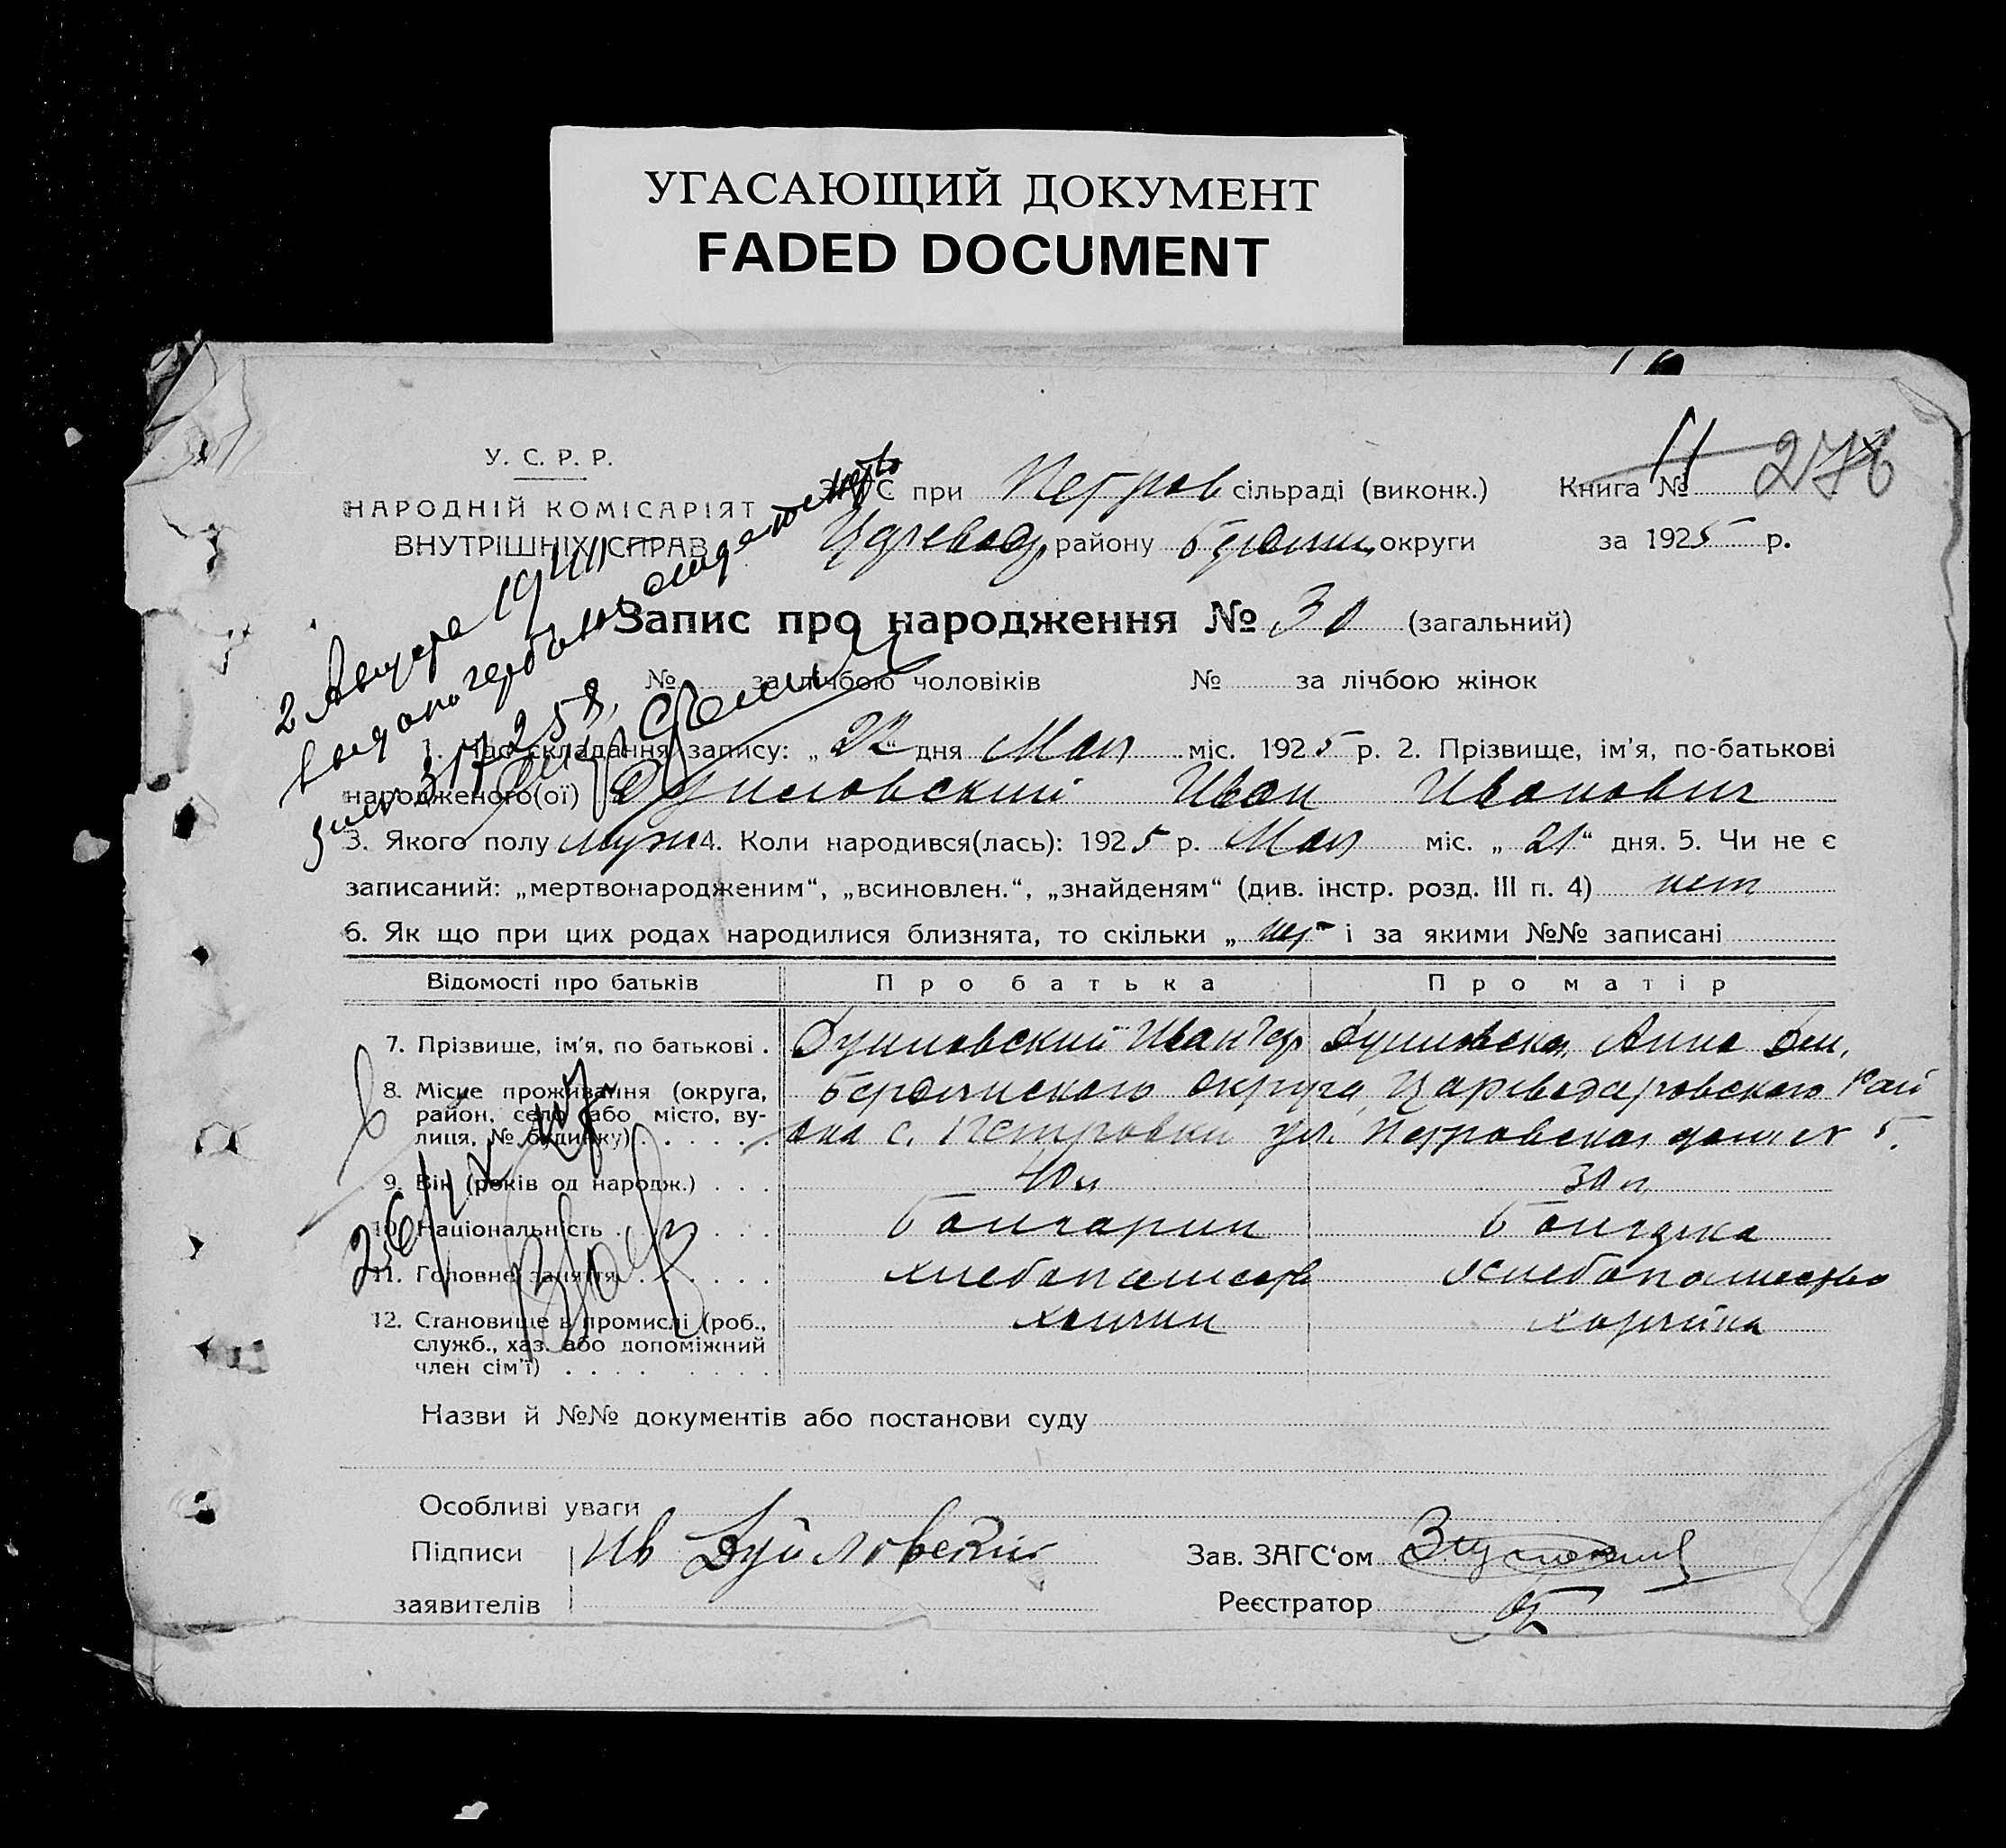 УГАСАЮЩИЙ ДОКУМЕНТ
FADED DOCUMENT
У. С. Р. Р.
НАРОДНІЙ КОМІСАРІЯТ
ВНУТРІШНІХ СПРАВ
ЗАГС при Петров сільраді (виконк.)
Книга № 11 276
району округи
за 1925 р.
2 Августа 1941
выдано
Запис про народження № 30 (загальний)
№ за лічбою чоловіків № за лічбою жінок
1. Час складання запису: „22“ дня Мая міс. 1925 р. 2. Прізвище, ім'я, по-батькові
народженого(ої) Дуйловский Иван Иванович
3. Якого полу муж 4. Коли народився(лась): 1925 р. Мая міс. „21“ дня. 5. Чи не є
записаний: „мертвонародженим“, „всиновлен.“, „знайденям“ (див. інстр. розд. III п. 4) нет
6. Як що при цих родах народилися близнята, то скільки „нет“ і за якими №№ записані
Відомості про батьків Про батька Про матір
7. Прізвище, ім'я, по батькові . Дуйловский Иван Дуйловская Анна
8. Місце проживання (округа, округа, Цареводаровского Рай
район, село або місто, ву-
лиця, № будинку) . . . . . она с. Петровки ул. Петровская дом № 5.
9. Вік (років од народж.) . . . 40 л 30 л
10. Національність . . . . . Болгарин Болгарка
11. Головне заняття . . . . . . хлебопашеств хлебопашество
12. Становище в промислі (роб., хазяин хазяйка
служб., хаз. або допоміжний
член сім'ї) . . . . . . . .
Назви й №№ документів або постанови суду
Особливі уваги
Підписи Ив Дуйловский
Зав. ЗАГС'ом
заявителів
Реєстратор